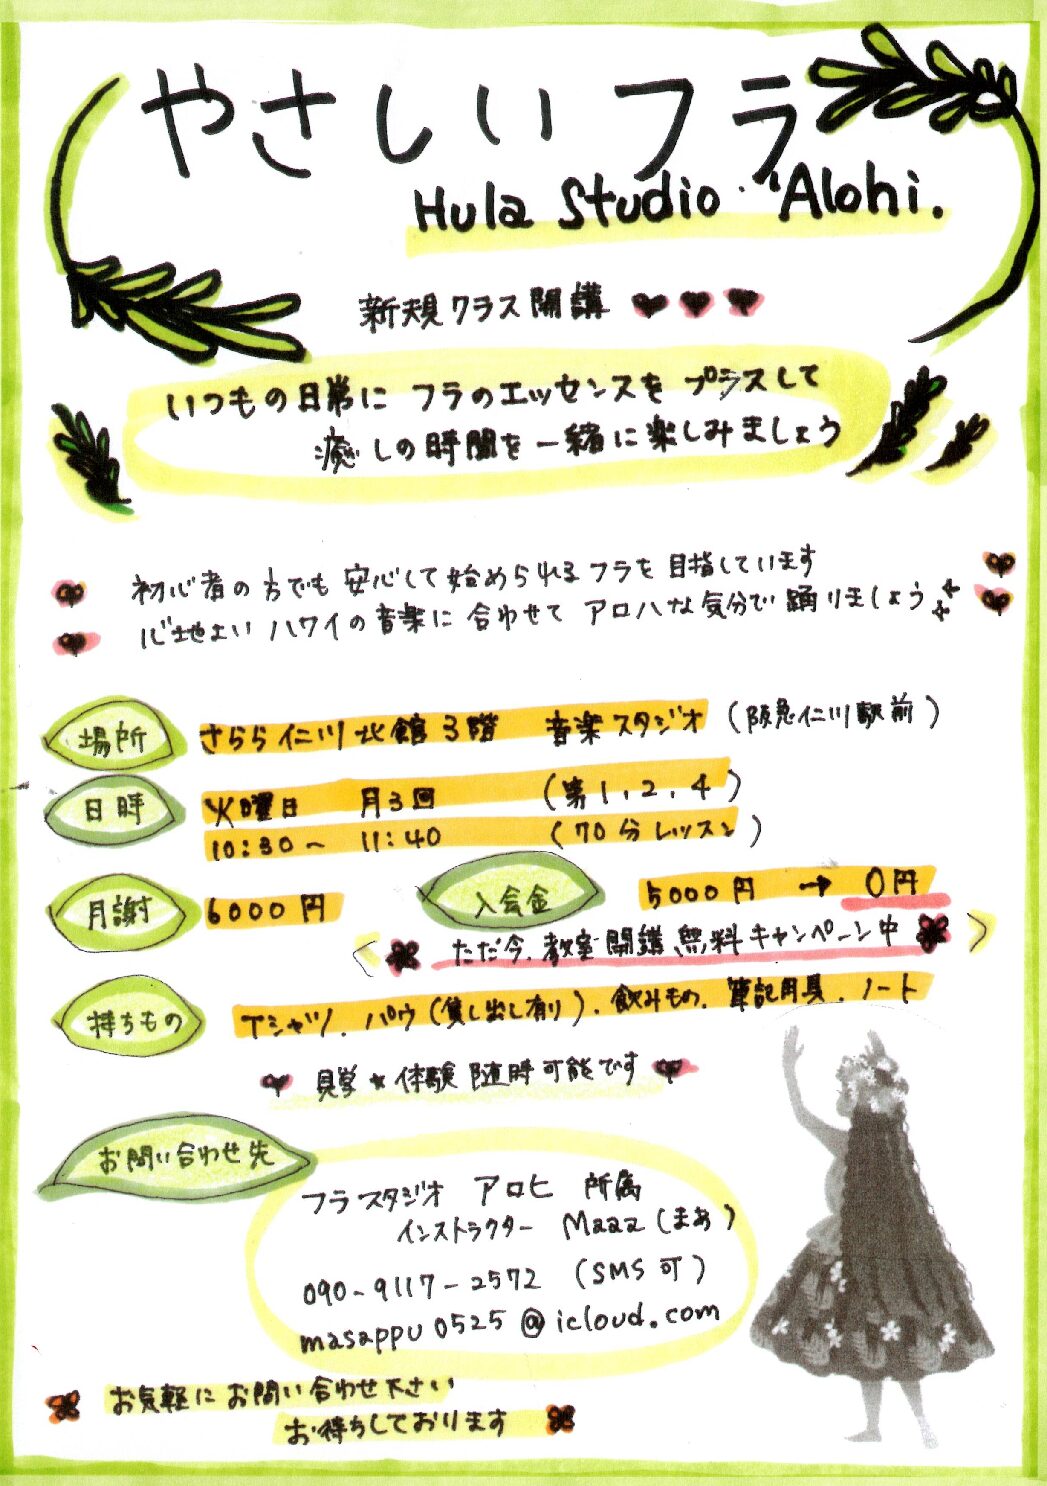 やさしい フラ
Hula Studio "Alohi.
新規クラス開講
いつもの日常に フラのエッセンスを プラスして
癒しの時間を 一緒に楽しみましょう
初心者の方でも 安心して始められるフラを目指しています
心地よい ハワイの音楽に 合わせて アロハな気分で 踊りましょう
場所 さらら仁川 北館 3階 音楽スタジオ (阪急仁川駅前)
日時 火曜日 月3回 (第1.2.4)
10:30~ 11:40 (70分レッスン)
月謝 6000円 入会金 5000円 → 0円
〈 ただ今、教室開講 無料キャンペーン中 〉
持ちもの Tシャツ、パウ(貸し出し有り)、飲みもの、筆記用具、ノート
見学★体験 随時可能です
お問い合わせ先
フラスタジオ アロヒ 所属
インストラクター Maaa(まあ)
090-9117-2572 (SMS可)
masappu0525@icloud.com
お気軽に お問い合わせ下さい
お待ちしております